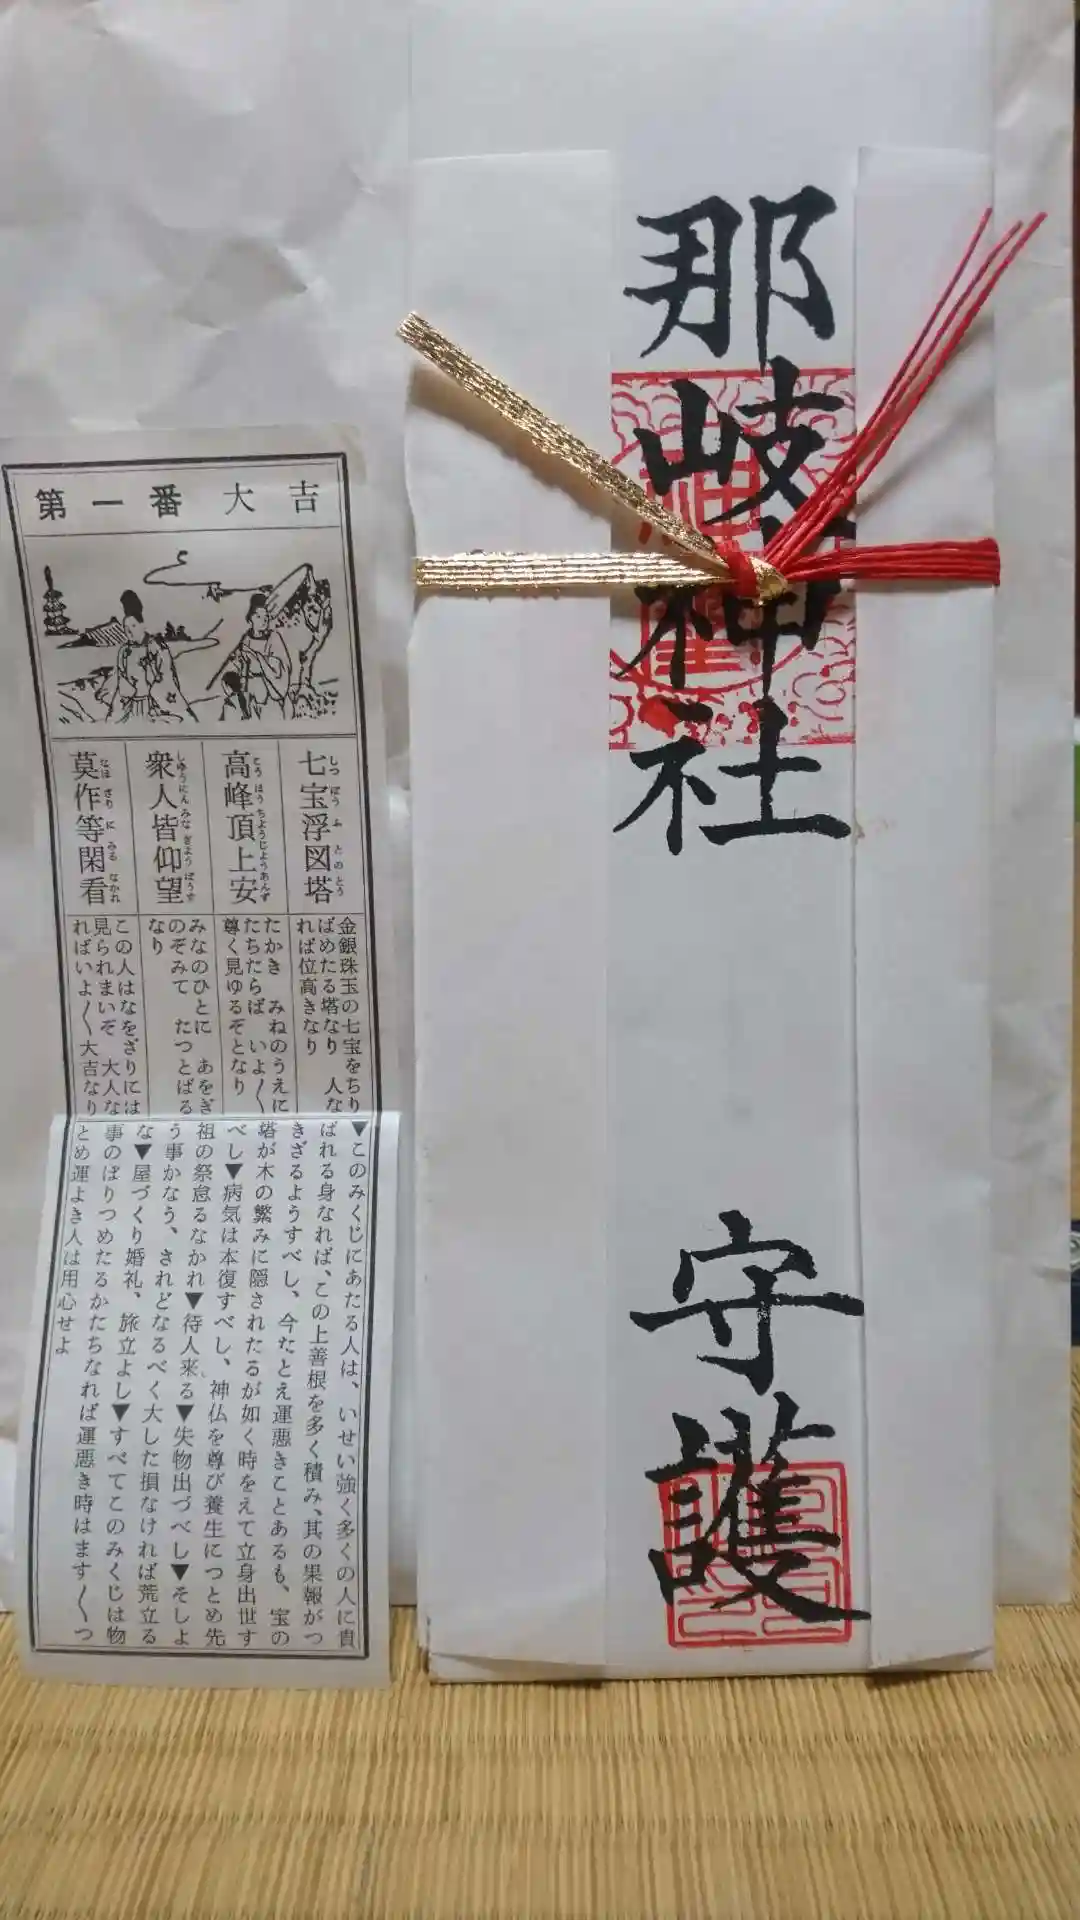 第一番 大吉
七宝浮図塔
しつ ぽう ふ との とう
高峰頂上安
とう ほう ちようじようあんず
衆人皆仰望
しゆうにん みな ぎよう ぼうす
莫作等閑看
なほ ざり に みる なかれ
金銀珠玉の七宝をちり
ばめたる塔なり 人な
れば位高きなり
たかき みねのうえに
たちたらば いよ〳〵
尊く見ゆるぞとなり
みなのひとに あをぎ
のぞみて たつとばる
なり
この人はなをざりには
見られまいぞ 大人な
ればいよ〳〵大吉なり
▼このみくじにあたる人は、いせい強く多くの人に貴
ばれる身なれば、この上善根を多く積み、其の果報がつ
きざるようすべし、今たとえ運悪きことあるも、宝の
塔が木の繁みに隠されたるが如く時をえて立身出世す
べし▼病気は本復すべし、神仏を尊び養生につとめ先
祖の祭怠るなかれ▼待人来る▼失物出づべし▼そしよ
う事かなう、されどなるべく大した損なければ荒立る
な▼屋づくり婚礼、旅立よし▼すべてこのみくじは物
事のぼりつめたるかたちなれば運悪き時はます〳〵つ
とめ運よき人は用心せよ
那岐神社
守護